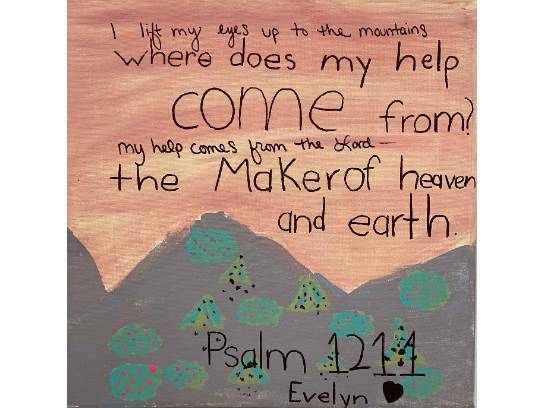 I lift my eyes up to the mountains
where does my help
come from?
my help comes from the Lord—
the Maker of heaven
and earth.
Psalm 121:1
Evelyn